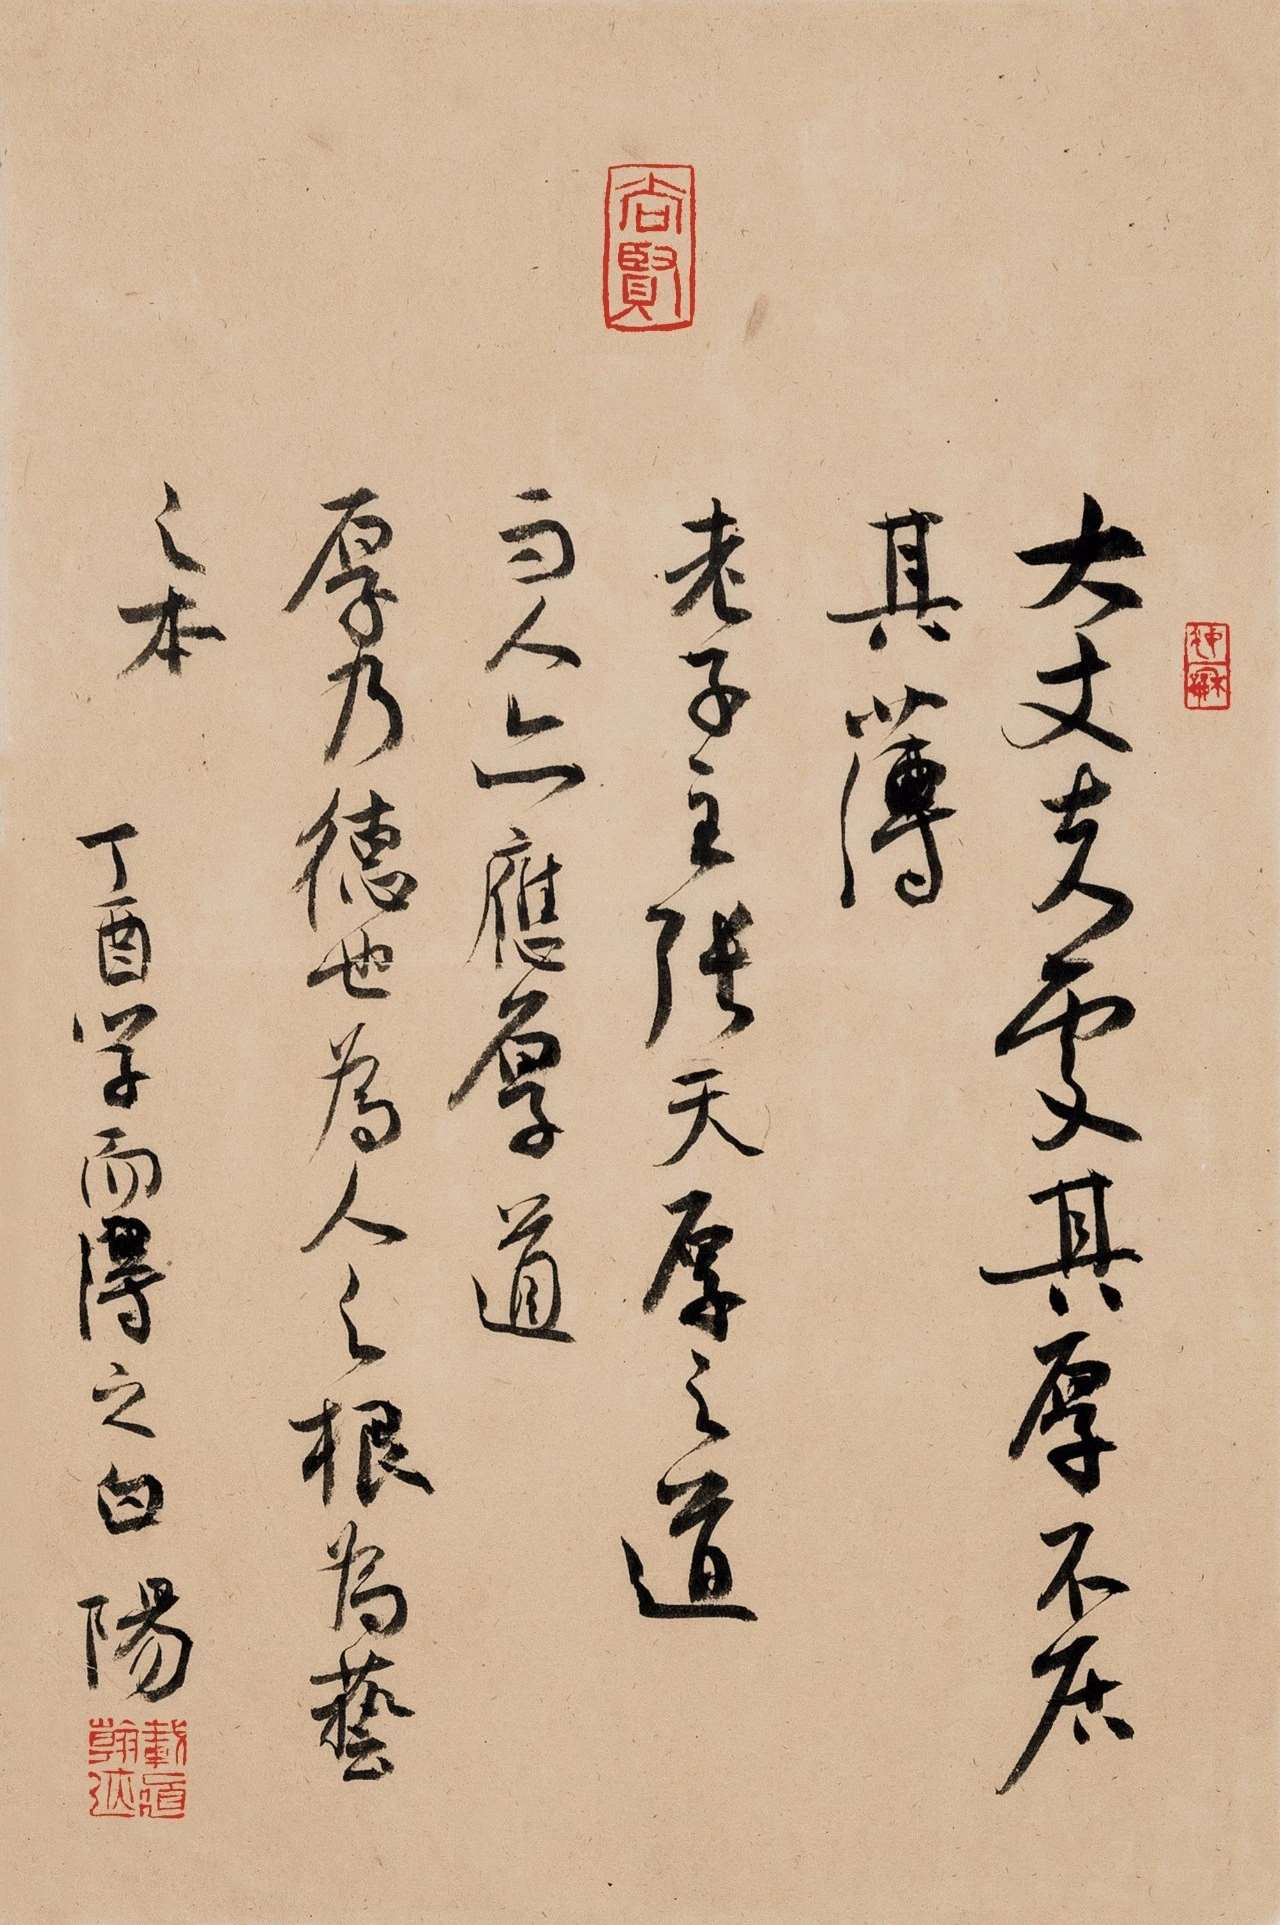 大丈夫處其厚不居
其薄
老子主張天厚之道
而人亦應厚道
厚乃德也為人之根為藝
之本
丁酉学而得之白陽
尚賢